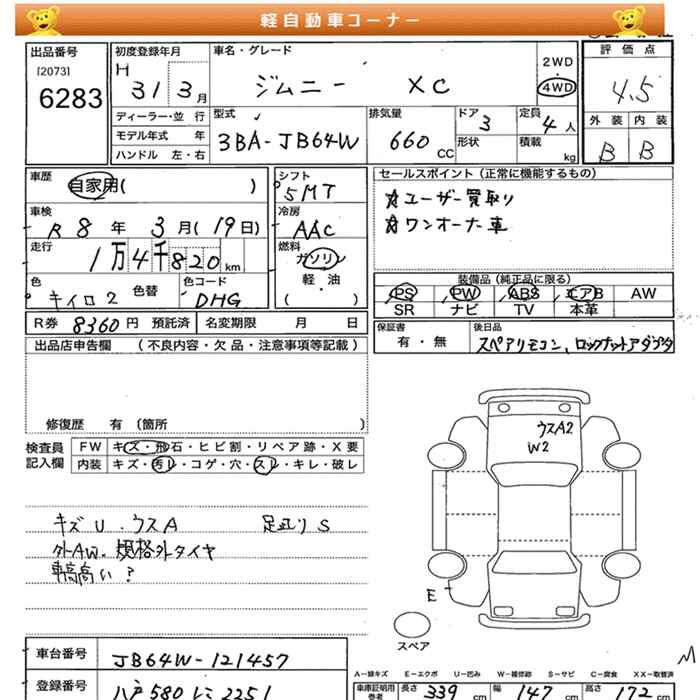 軽自動車コーナー
出品番号 初度登録年月 車名・グレード 評価点
[2073] H 2WD
6283 31 3月 ジムニー XC 4WD 4.5
ディーラー・並 行 型式 排気量 ドア 3 定員 4人 外装 内装
モデル年式 年 3BA-JB64W 660 CC 形状 積載 kg B B
ハンドル 左・右
車歴 自家用( ) シフト 5MT セールスポイント(正常に機能するもの)
車検 R 8年 3月(19日) 冷房 AAC ☆ユーザー買取り
走行 1万4千820km 燃料 ガソリン ☆ワンオーナー車
色 キイロ2 色替 色コード DHG 軽・油 ( )
装備品(純正品に限る)
PS PW ABS エアB AW
SR ナビ TV 本革
R券 8360円 預託済 名変期限 月 日
保証書 有・無 後日品 スペアリモコン、ロックナットアダプタ
出品店申告欄 (不良内容・欠品・注意事項等記載)
修復歴 有〔箇所 〕
検査員 FW キズ・飛石・ヒビ割・リペア跡・X要
記入欄 内装 キズ・汚レ・コゲ・穴・スレ・キレ・破レ
ウスA2
W2
キズU.ウスA 足廻りS
外AW.規格外タイヤ
車高高い?
E
スペア
車台番号 JB64W-121457
登録番号 八戸580 2251
A-線キズ E-エクボ U-凹み W-補修跡 S-サビ C-腐食 XX-取替済
車庫証明用 参考 長さ 339 cm 幅 147 cm 高さ 172 cm